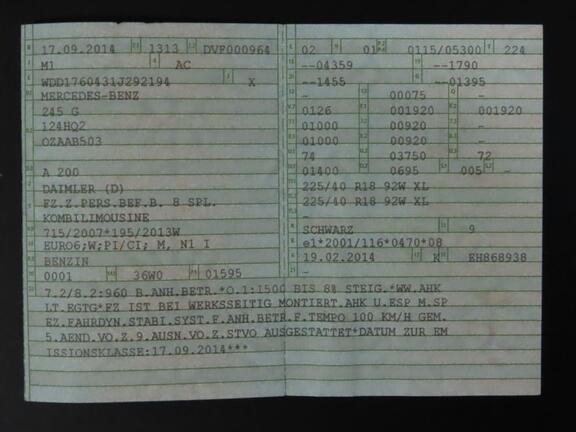 17.09.2014 1313 DVF000964
M1 AC
WDD1760431J292194 X
MERCEDES-BENZ
245 G
124HQ2
OZAAB503
A 200
DAIMLER (D)
FZ.Z.PERS.BEF.B. 8 SPL.
KOMBILIMOUSINE
715/2007*195/2013W
EURO6;W;PI/CI; M, N1 I
BENZIN
0001 36W0 01595
02 01 0115/05300 224
--04359 --1790
--1455 --01395
- 00075 -
0126 001920 001920
01000 00920 -
01000 00920 -
74 03750 72
01400 0695 005 -
225/40 R18 92W XL
225/40 R18 92W XL
-
SCHWARZ 9
e1*2001/116*0470*08
19.02.2014 K EH868938
-
7.2/8.2:960 B.ANH.BETR.*O.1:1500 BIS 8% STEIG.*WW.AHK
LT.EGTG*FZ IST BEI WERKSSEITIG MONTIERT.AHK U.ESP M.SP
EZ.FAHRDYN.STABI.SYST.F.ANH.BETR.F.TEMPO 100 KM/H GEM.
5.AEND.VO.Z.9.AUSN.VO.Z.STVO AUSGESTATTET*DATUM ZUR EM
ISSIONSKLASSE:17.09.2014***